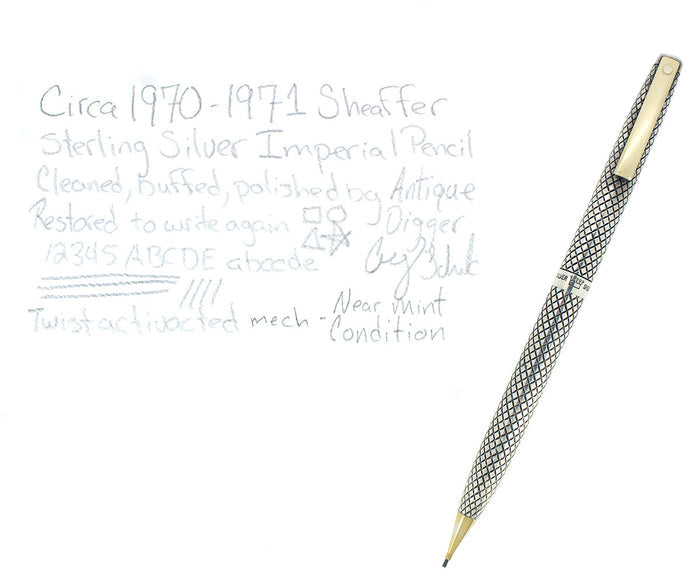 Circa 1970-1971 Sheaffer
Sterling Silver Imperial Pencil
Cleaned, buffed, polished by Antique
Restored to write again Digger
12345 ABCDE abccde
Twist activacted mech - Near mint
Condition